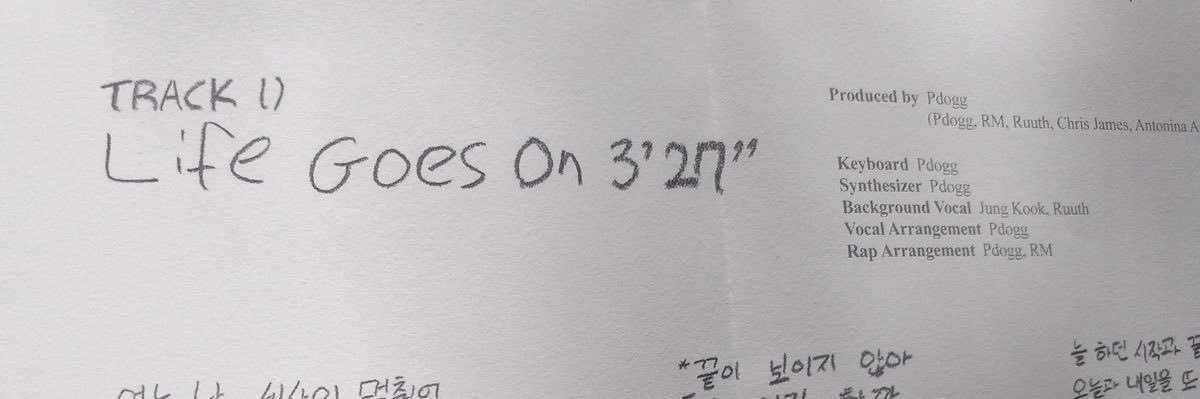 TRACK 1)
Life Goes On 3'27"
Produced by Pdogg
(Pdogg, RM, Ruuth, Chris James, Antonina
Keyboard Pdogg
Synthesizer Pdogg
Background Vocal Jung Kook, Ruuth
Vocal Arrangement Pdogg
Rap Arrangement Pdogg, RM
*끝이 보이지 않아
늘 하던 시작과 끝
오늘과 내일을 또